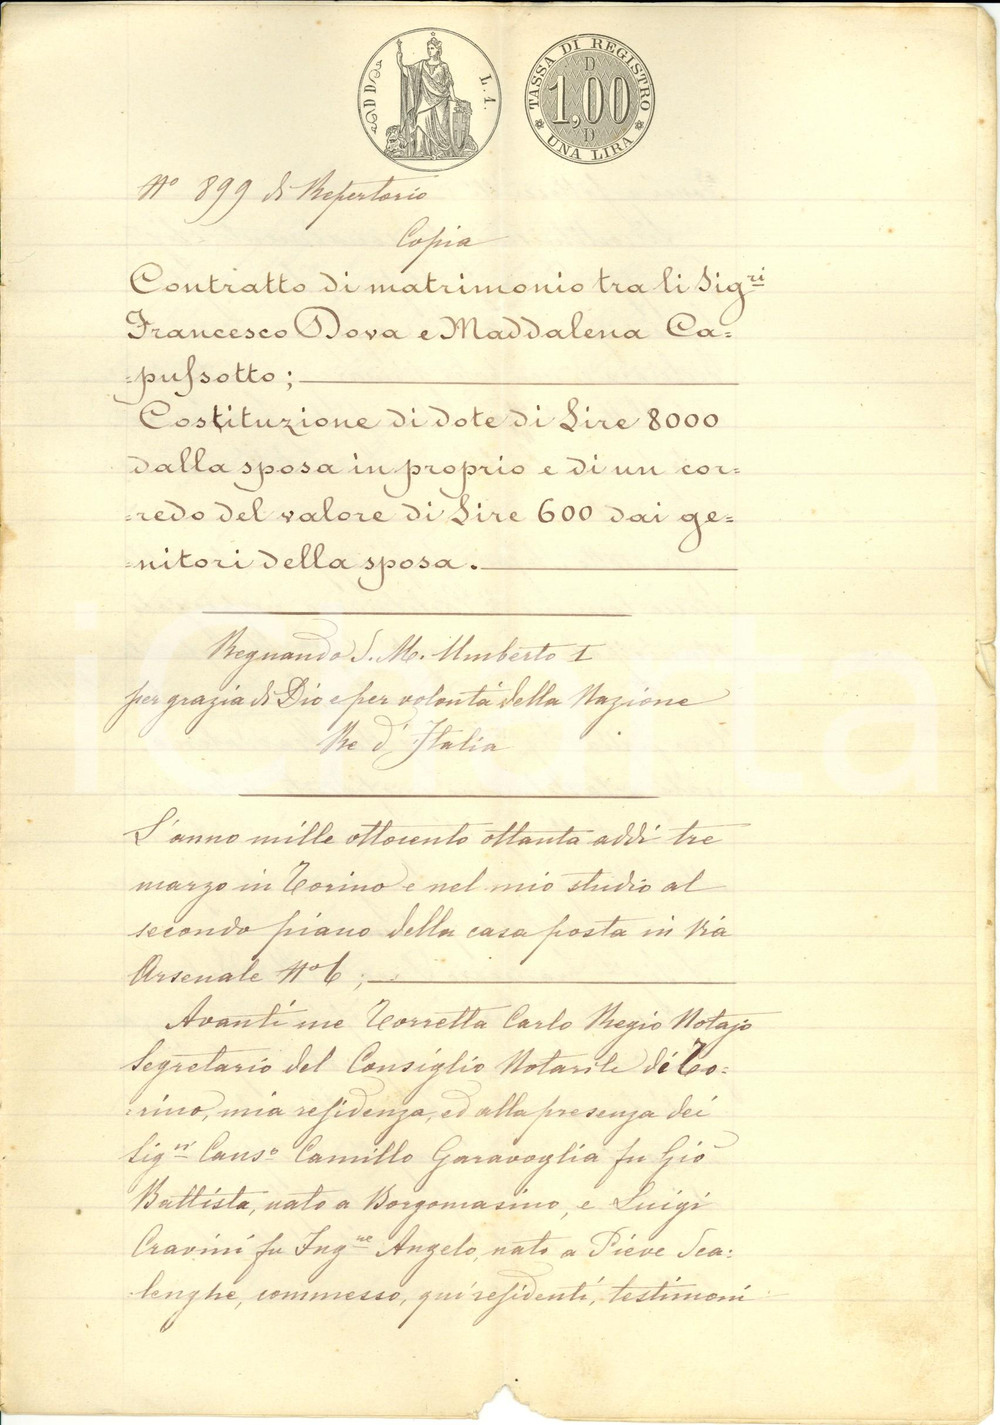 DD
L. 1.
TASSA DI REGISTRO
D
1,00
D
UNA LIRA
N° 899 di Repertorio
Copia
Contratto di matrimonio tra li Sigri
Francesco Dova e Maddalena Ca=
=pussotto;
Costituzione di dote di Lire 8000
dalla sposa in proprio e di un cor=
=redo del valore di Lire 600 dai ge=
=nitori della sposa.
Regnando S. M. Umberto I
per grazia di Dio e per volontà della Nazione
Re d'Italia
L'anno mille ottocento ottanta addì tre
marzo in Torino e nel mio studio al
secondo piano della casa posta in Via
Arsenale N° 6;
Avanti me Torretta Carlo Regio Notajo
Segretario del Consiglio Notarile di To=
=rino, mia residenza, ed alla presenza dei
Sigri Causo Camillo Garavoglia fu Gio
Battista, nato a Borgomasino, e Luigi
Cravini fu Ingne Angelo, nato a Pieve Sca=
lenghe, commesso, qui residenti, testimoni